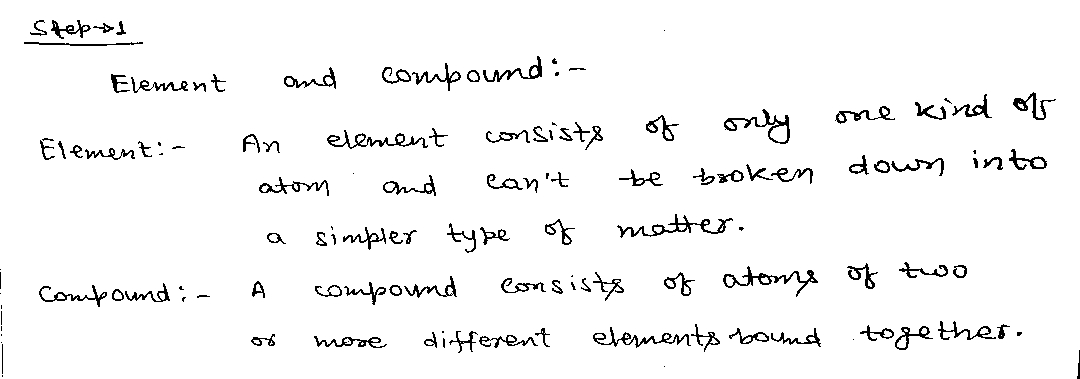 Step→1
Element and compound:-
Element:- An element consists of only one kind of
atom and can't be broken down into
a simpler type of matter.
Compound:- A compound consists of atoms of two
or more different elements bound together.